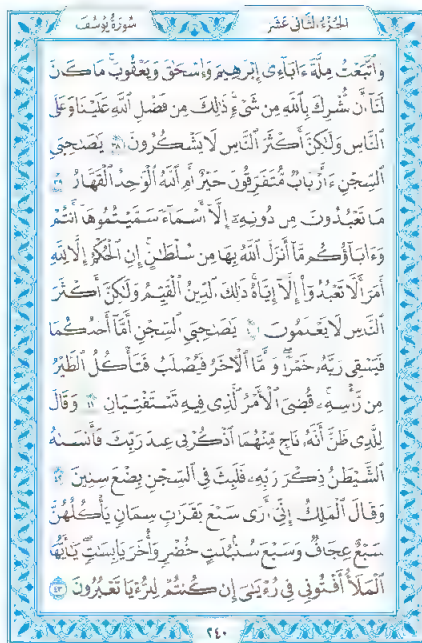 الجزء الثاني عشر
سورة يوسف
وَٱتَّبَعْتُ مِلَّةَ ءَابَآءِىٓ إِبْرَٰهِيمَ وَإِسْحَٰقَ وَيَعْقُوبَ مَا كَانَ
لَنَآ أَن نُّشْرِكَ بِٱللَّهِ مِن شَىْءٍ ذَٰلِكَ مِن فَضْلِ ٱللَّهِ عَلَيْنَا وَعَلَى
ٱلنَّاسِ وَلَٰكِنَّ أَكْثَرَ ٱلنَّاسِ لَا يَشْكُرُونَ ٣٨ يَٰصَىٰحِبَىِ
ٱلسِّجْنِ ءَأَرْبَابٌ مُّتَفَرِّقُونَ خَيْرٌ أَمِ ٱللَّهُ ٱلْوَٰحِدُ ٱلْقَهَّارُ ٣٩
مَا تَعْبُدُونَ مِن دُونِهِۦٓ إِلَّآ أَسْمَآءً سَمَّيْتُمُوهَآ أَنتُمْ
وَءَابَآؤُكُم مَّآ أَنزَلَ ٱللَّهُ بِهَا مِن سُلْطَٰنٍ إِنِ ٱلْحُكْمُ إِلَّا لِلَّهِ
أَمَرَ أَلَّا تَعْبُدُوٓا۟ إِلَّآ إِيَّاهُ ذَٰلِكَ ٱلدِّينُ ٱلْقَيِّمُ وَلَٰكِنَّ أَكْثَرَ
ٱلنَّاسِ لَا يَعْلَمُونَ ٤٠ يَٰصَىٰحِبَىِ ٱلسِّجْنِ أَمَّآ أَحَدُكُمَا
فَيَسْقِى رَبَّهُۥ خَمْرًا وَأَمَّا ٱلْءَاخَرُ فَيُصْلَبُ فَتَأْكُلُ ٱلطَّيْرُ
مِن رَّأْسِهِۦ قُضِىَ ٱلْأَمْرُ ٱلَّذِى فِيهِ تَسْتَفْتِيَانِ ٤١ وَقَالَ
لِلَّذِى ظَنَّ أَنَّهُۥ نَاجٍ مِّنْهُمَا ٱذْكُرْنِى عِندَ رَبِّكَ فَأَنسَىٰهُ
ٱلشَّيْطَٰنُ ذِكْرَ رَبِّهِۦ فَلَبِثَ فِى ٱلسِّجْنِ بِضْعَ سِنِينَ ٤٢
وَقَالَ ٱلْمَلِكُ إِنِّىٓ أَرَىٰ سَبْعَ بَقَرَٰتٍ سِمَانٍ يَأْكُلُهُنَّ
سَبْعٌ عِجَافٌ وَسَبْعَ سُنۢبُلَٰتٍ خُضْرٍ وَأُخَرَ يَابِسَٰتٍ يَٰٓأَيُّهَا
ٱلْمَلَأُ أَفْتُونِى فِى رُءْيَٰىَ إِن كُنتُمْ لِلرُّءْيَا تَعْبُرُونَ ٤٣
٢٤٠